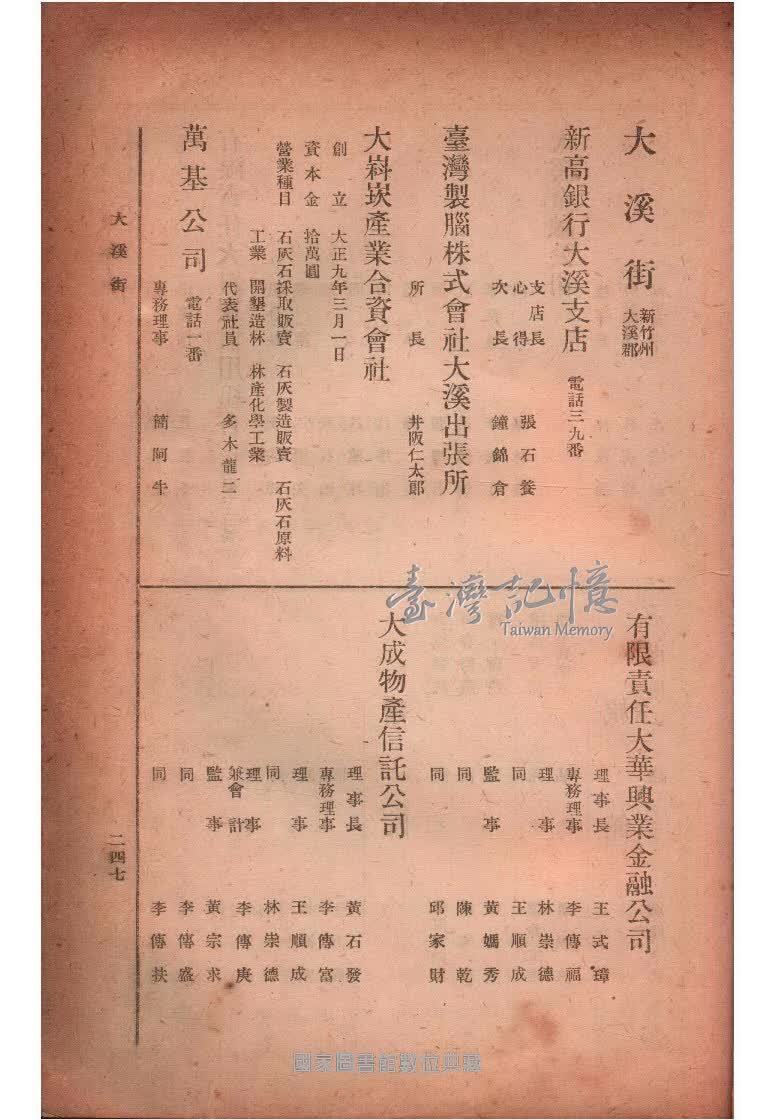 大溪街 新竹州 大溪郡
新高銀行大溪支店 電話三九番
支店長心得 張石養
次長 鐘錦倉
臺灣製腦株式會社大溪出張所
所長 井阪仁太郎
大嵙崁產業合資會社
創立 大正九年三月一日
資本金 拾萬圓
營業種目 石灰石採取販賣 石灰製造販賣 石灰石原料
工業 開墾造林 林產化學工業
代表社員 多木龍二
萬基公司 電話一番
專務理事 簡阿牛
有限責任大華興業金融公司
理事長 王式璋
專務理事 李傳福
理事 林崇德
同 王順成
監事 黃媽秀
同 陳乾
同 邱家財
大成物產信託公司
理事長 黃石發
專務理事 李傳富
理事 王順成
同 林崇德
理事兼會計 李傳庚
監事 黃宗求
同 李傳盛
同 李傳扶
大溪街
二四七
臺灣記憶
Taiwan Memory
國家圖書館數位典藏